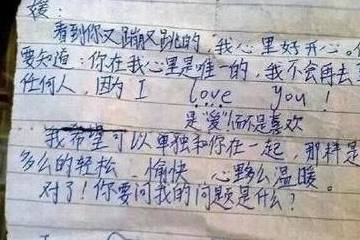 媛：
看到你又蹦又跳的，我心里好开心。
要知道：你在我心里是唯一的，我不会再去
任何人，因为 I love you！
是“爱”而不是喜欢
我希望可以单独和你在一起，那样是
多么的轻松、愉快、心里多么温暖。
对了！你要问我的问题是什么？